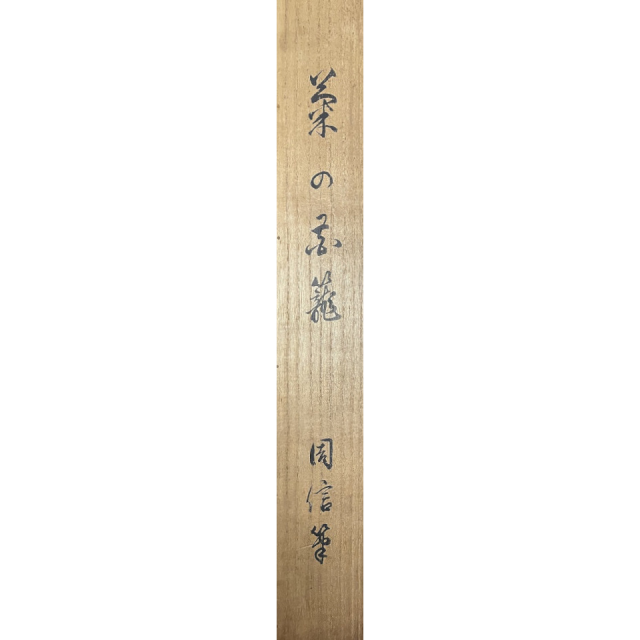 菊の花籠 周信筆